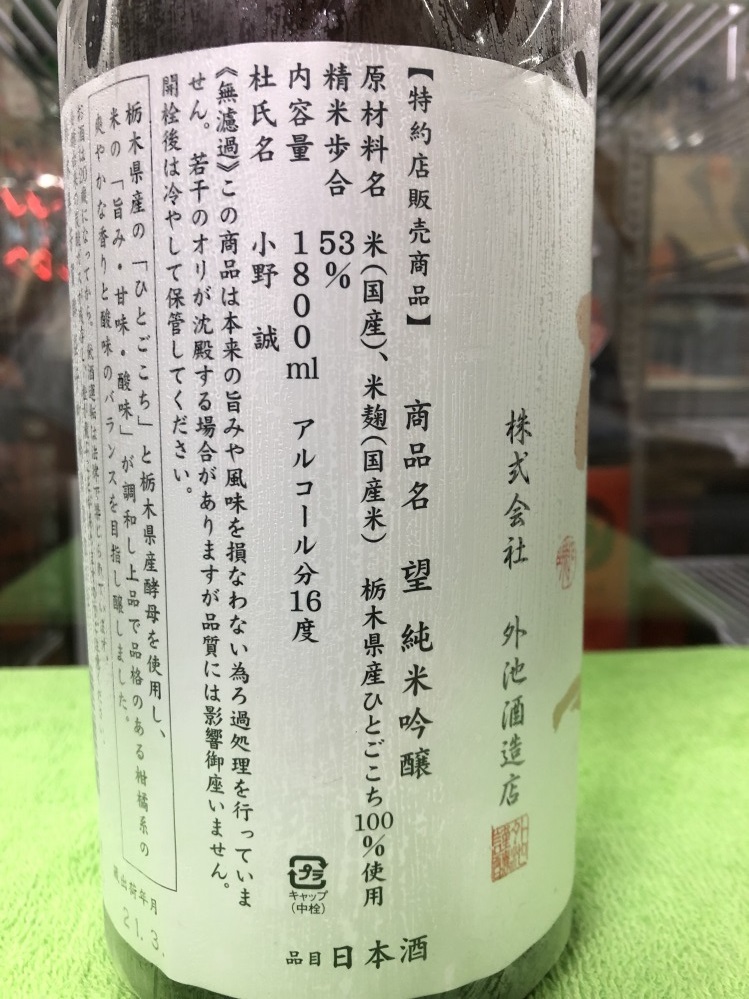 株式会社 外池酒造店
【特約店販売商品】 商品名 望 純米吟醸
原材料名 米(国産)、米麹(国産米) 栃木県産ひとごこち100%使用
精米歩合 53%
内容量 1800ml アルコール分16度
杜氏名 小野 誠
《無濾過》この商品は本来の旨みや風味を損なわない為ろ過処理を行っていま
せん。 若干のオリが沈殿する場合がありますが品質には影響御座いません。
開栓後は冷やして保管してください。
栃木県産の「ひとごこち」と栃木県産酵母を使用し、
米の「旨み・甘味・酸味」が調和し上品で品格のある柑橘系の
爽やかな香りと酸味のバランスを目指し醸しました。
お酒は20歳になってから。飲酒運転は法律で禁じられています。
プラ
キャップ
(中栓)
品目 日本酒
蔵出荷年月
21.3.